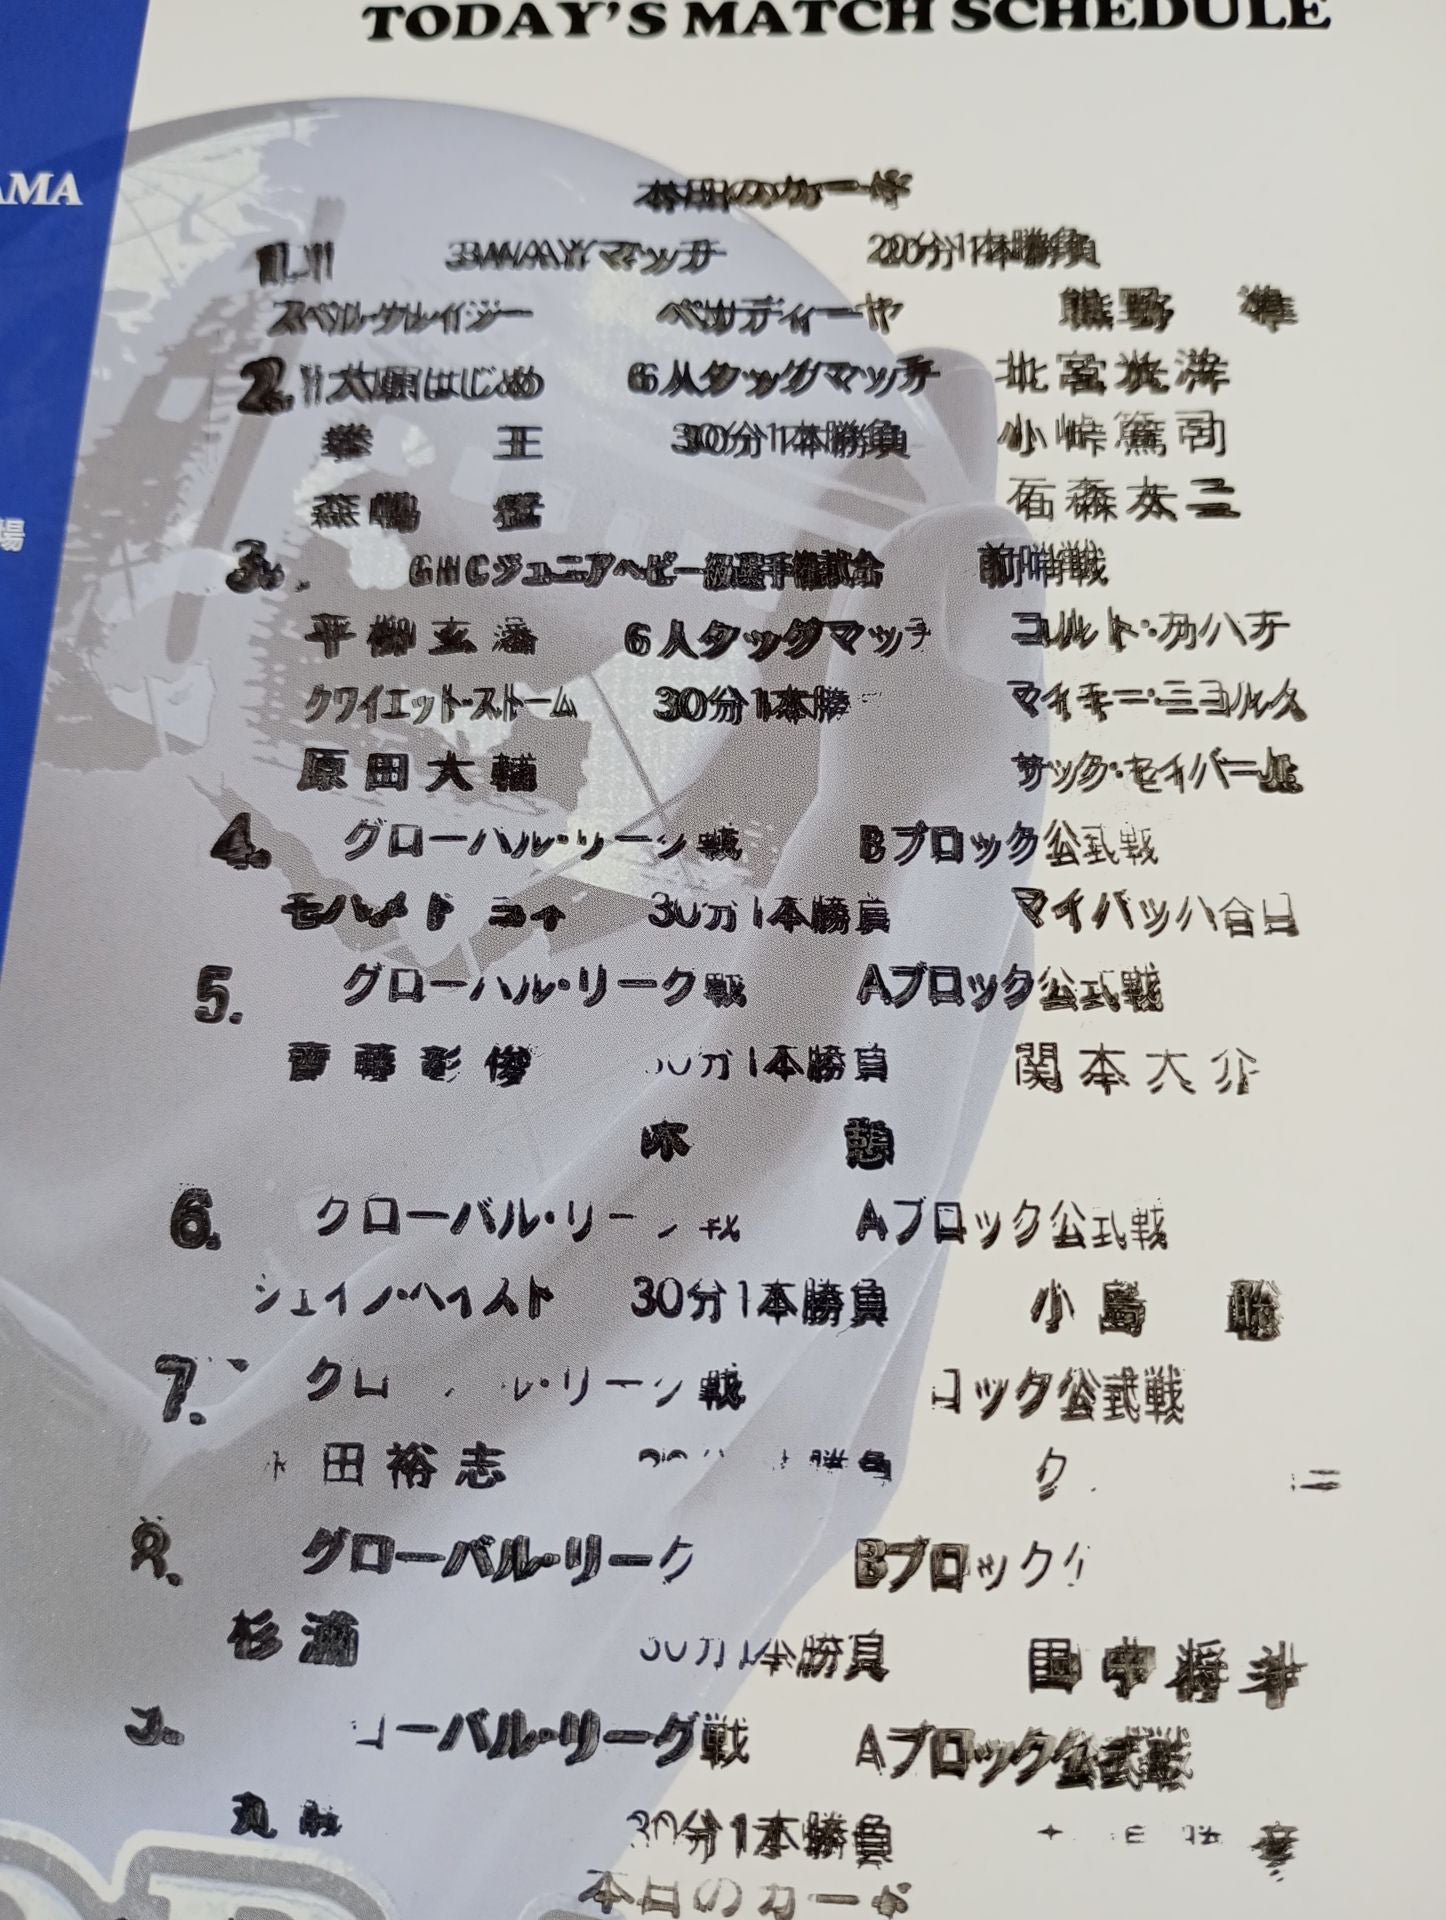 TODAY'S MATCH SCHEDULE
AMA
場
本日のカード
1. 3WAYマッチ 20分1本勝負
スペル・クレイジー ペサディーヤ 熊野 準
2. 大原はじめ 6人タッグマッチ 北宮光洋
拳 王 30分1本勝負 小峠篤司
森嶋 猛 石森太二
3. GHCジュニアヘビー級選手権試合 前哨戦
平柳玄藩 6人タッグマッチ コルト・カバナ
クワイエット・ストーム 30分1本勝 マイキー・ニコルス
原田大輔 ザック・セイバーJr.
4. グローバル・リーグ戦 Bブロック公式戦
モハメド ヨネ 30分1本勝負 マイバッハ谷口
5. グローバル・リーグ戦 Aブロック公式戦
齋藤彰俊 30分1本勝負 関本大介
休 憩
6. グローバル・リーグ戦 Aブロック公式戦
シェイン・ヘイスト 30分1本勝負 小島 聡
7. グローバル・リーグ戦 ロック公式戦
田裕志 本勝負
8. グローバル・リーグ Bブロック
杉浦 30分1本勝負 田中将斗
ーバル・リーグ戦 Aブロック公式戦
丸 30分1本勝負
本日のカード